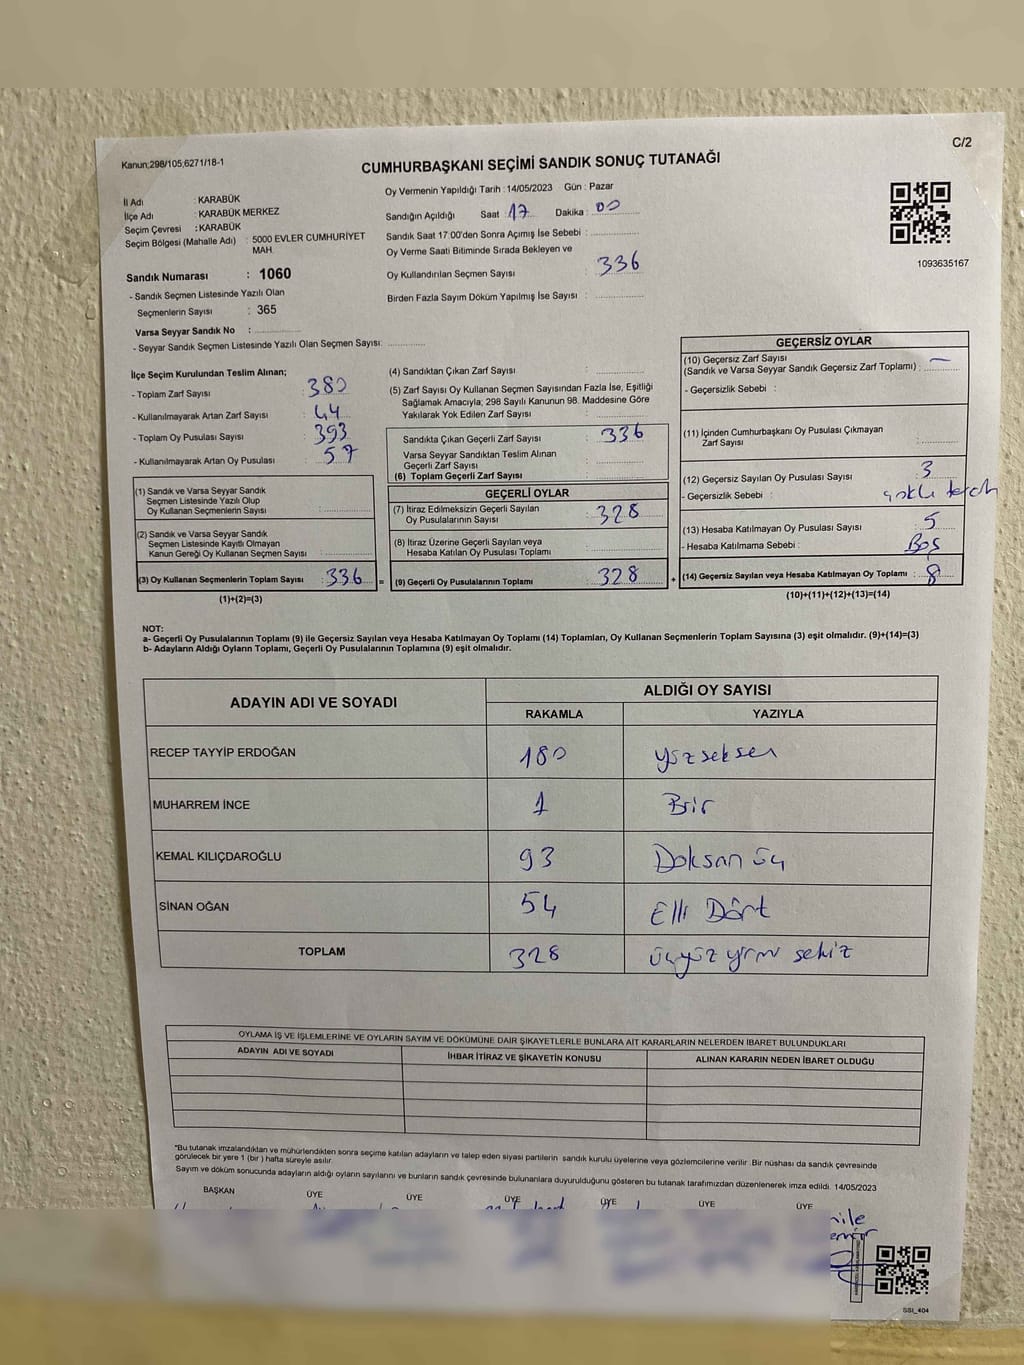 Kanun;298/105;6271/18-1
C/2
CUMHURBAŞKANI SEÇİMİ SANDIK SONUÇ TUTANAĞI
İl Adı : KARABÜK
İlçe Adı : KARABÜK MERKEZ
Seçim Çevresi : KARABÜK
Seçim Bölgesi (Mahalle Adı) : 5000 EVLER CUMHURİYET
MAH.
Sandık Numarası : 1060
- Sandık Seçmen Listesinde Yazılı Olan
Seçmenlerin Sayısı : 365
Varsa Seyyar Sandık No :
- Seyyar Sandık Seçmen Listesinde Yazılı Olan Seçmen Sayısı:
Oy Vermenin Yapıldığı Tarih : 14/05/2023 Gün : Pazar
Sandığın Açıldığı Saat : 17 Dakika : 00
Sandık Saat 17:00'den Sonra Açımış İse Sebebi :
Oy Verme Saati Bitiminde Sırada Bekleyen ve
Oy Kullandırılan Seçmen Sayısı : 336
Birden Fazla Sayım Döküm Yapılmış İse Sayısı :
1093635167
İlçe Seçim Kurulundan Teslim Alınan;
- Toplam Zarf Sayısı : 380
- Kullanılmayarak Artan Zarf Sayısı : 44
- Toplam Oy Pusulası Sayısı : 393
- Kullanılmayarak Artan Oy Pusulası : 57
(1) Sandık ve Varsa Seyyar Sandık
Seçmen Listesinde Yazılı Olup
Oy Kullanan Seçmenlerin Sayısı :
(2) Sandık ve Varsa Seyyar Sandık
Seçmen Listesinde Kayıtlı Olmayan
Kanun Gereği Oy Kullanan Seçmen Sayısı :
(3) Oy Kullanan Seçmenlerin Toplam Sayısı : 336 =
(1)+(2)=(3)
(4) Sandıktan Çıkan Zarf Sayısı :
(5) Zarf Sayısı Oy Kullanan Seçmen Sayısından Fazla İse, Eşitliği
Sağlamak Amacıyla; 298 Sayılı Kanunun 98. Maddesine Göre
Yakılarak Yok Edilen Zarf Sayısı :
Sandıkta Çıkan Geçerli Zarf Sayısı : 336
Varsa Seyyar Sandıktan Teslim Alınan
Geçerli Zarf Sayısı :
(6) Toplam Geçerli Zarf Sayısı :
GEÇERLİ OYLAR
(7) İtiraz Edilmeksizin Geçerli Sayılan
Oy Pusulalarının Sayısı : 328
(8) İtiraz Üzerine Geçerli Sayılan veya
Hesaba Katılan Oy Pusulası Toplamı :
(9) Geçerli Oy Pusulalarının Toplamı : 328 +
GEÇERSİZ OYLAR
(10) Geçersiz Zarf Sayısı
(Sandık ve Varsa Seyyar Sandık Geçersiz Zarf Toplamı) : —
- Geçersizlik Sebebi :
(11) İçinden Cumhurbaşkanı Oy Pusulası Çıkmayan
Zarf Sayısı :
(12) Geçersiz Sayılan Oy Pusulası Sayısı : 3
- Geçersizlik Sebebi :
(13) Hesaba Katılmayan Oy Pusulası Sayısı : 5
- Hesaba Katılmama Sebebi : Boş
(14) Geçersiz Sayılan veya Hesaba Katılmayan Oy Toplamı : 8
(10)+(11)+(12)+(13)=(14)
NOT:
a- Geçerli Oy Pusulalarının Toplamı (9) ile Geçersiz Sayılan veya Hesaba Katılmayan Oy Toplamı (14) Toplamları, Oy Kullanan Seçmenlerin Toplam Sayısına (3) eşit olmalıdır. (9)+(14)=(3)
b- Adayların Aldığı Oyların Toplamı, Geçerli Oy Pusulalarının Toplamına (9) eşit olmalıdır.
ADAYIN ADI VE SOYADI ALDIĞI OY SAYISI
RAKAMLA YAZIYLA
RECEP TAYYİP ERDOĞAN 180 yüzseksen
MUHARREM İNCE 1 Bir
KEMAL KILIÇDAROĞLU 93 Doksan üç
SİNAN OĞAN 54 Elli Dört
TOPLAM 328 üçyüz yirmi sekiz
OYLAMA İŞ VE İŞLEMLERİNE VE OYLARIN SAYIM VE DÖKÜMÜNE DAİR ŞİKAYETLERLE BUNLARA AİT KARARLARIN NELERDEN İBARET BULUNDUKLARI
ADAYIN ADI VE SOYADI İHBAR İTİRAZ VE ŞİKAYETİN KONUSU ALINAN KARARIN NEDEN İBARET OLDUĞU
*Bu tutanak imzalandıktan ve mühürlendikten sonra seçime katılan adayların ve talep eden siyasi partilerin sandık kurulu üyelerine veya gözlemcilerine verilir .Bir nüshası da sandık çevresinde
görülecek bir yere 1 (bir ) hafta süreyle asılır.
Sayım ve döküm sonucunda adayların aldığı oyların sayılarını ve bunların sandık çevresinde bulunanlara duyurulduğunu gösteren bu tutanak tarafımızdan düzenlenerek imza edildi. 14/05/2023
BAŞKAN ÜYE ÜYE ÜYE ÜYE ÜYE ÜYE
SSI_404